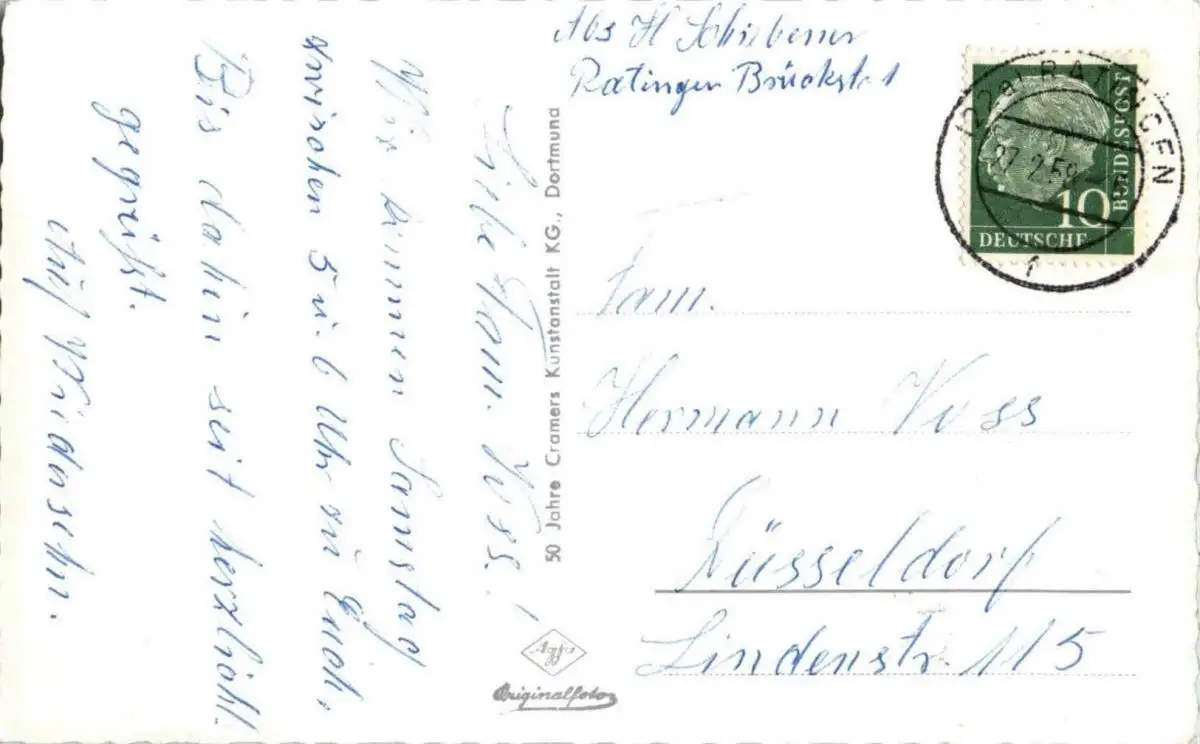 Abs H
Ratingen Brückstr 1
(22a) RATINGEN
27.2.59
1
10
BUNDESPOST
DEUTSCHE
Fam.
Hermann Voss
Düsseldorf
Lindenstr. 115
50 Jahre Cramers Kunstanstalt KG., Dortmund
Agfa
Originalfoto
Liebe Fam. Voss!
Wir kommen Samstag
zwischen 5 u. 6 Uhr zu Euch,
Bis dahin seit herzlichl.
gegrüßt.
Auf Wiedersehn.